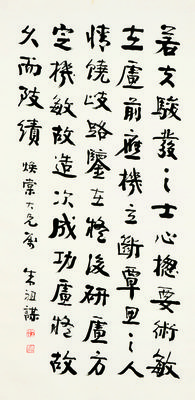 若夫駿發之士心摠要術敏
在慮前應機立斷覃思之人
情饒歧路鑒在疑後研慮方
定機敏故造次成功慮疑故
久而致績 煥棠大兄屬 朱祖謀